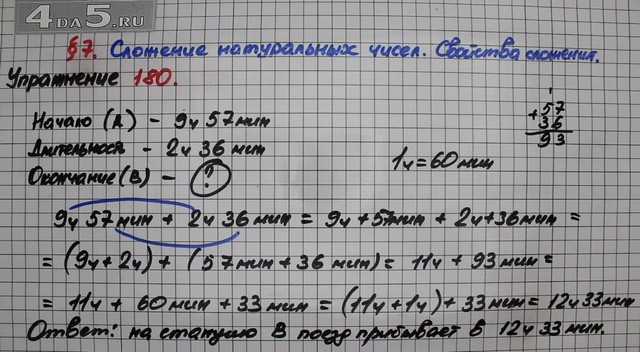 4DA5.RU
§7. Сложение натуральных чисел. Свойства сложения.
Упражнение 180.
Начало (А) - 9ч 57 мин
Длительность - 2ч 36 мин
Окончание (В) - ?
1ч = 60 мин
1
+57
36
93
9ч 57 мин + 2ч 36 мин = 9ч + 57 мин + 2ч + 36 мин =
= (9ч + 2ч) + (57 мин + 36 мин) = 11ч + 93 мин =
= 11ч + 60 мин + 33 мин = (11ч + 1ч) + 33 мин = 12ч 33 мин
Ответ: на станцию В поезд прибывает в 12ч 33 мин.